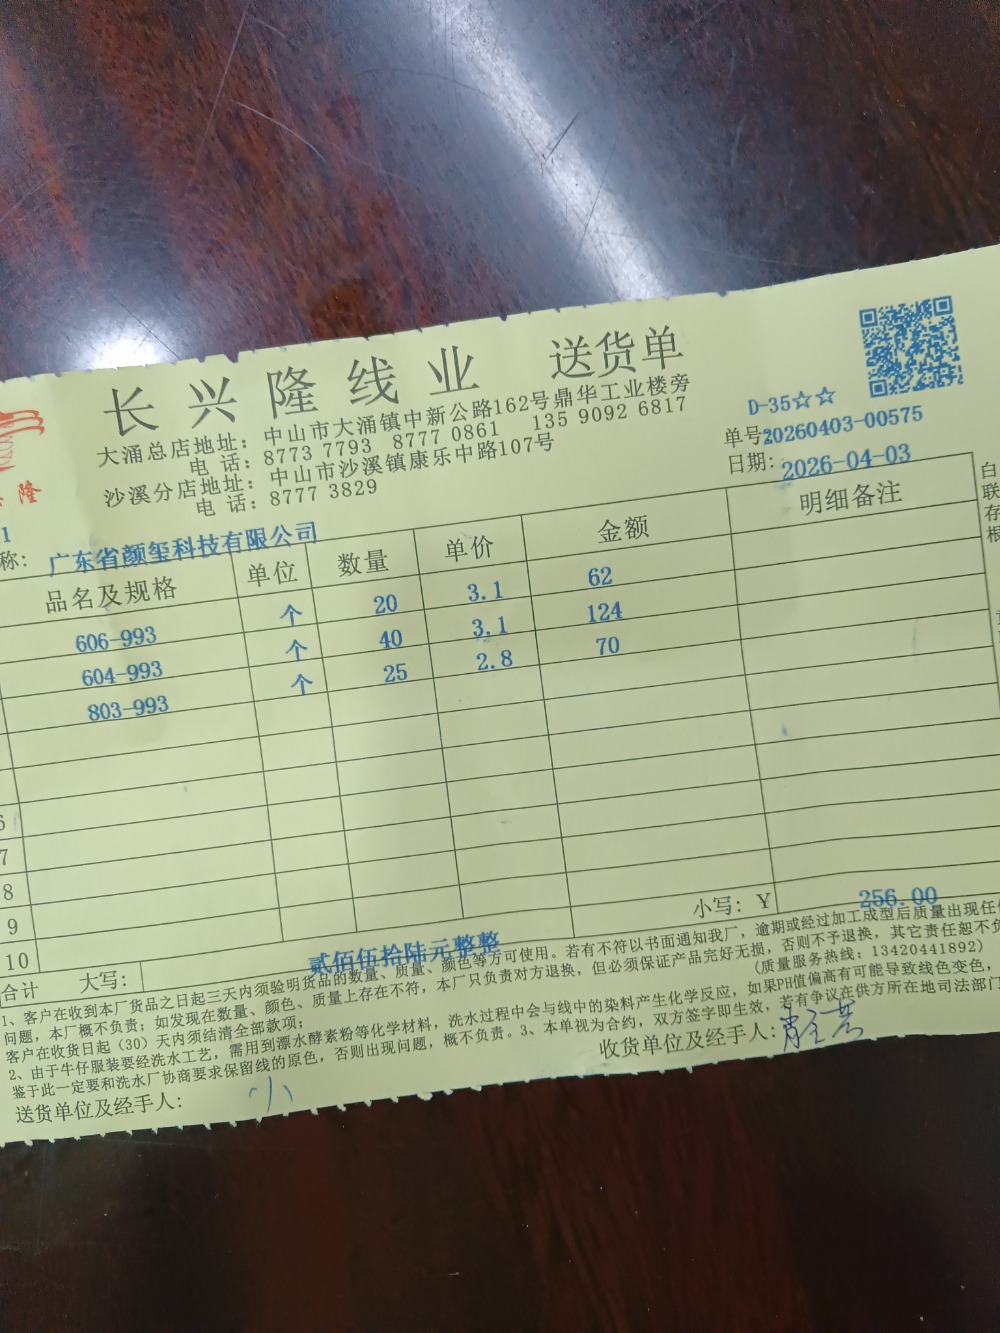 长兴隆线业 送货单
大涌总店地址：中山市大涌镇中新公路162号鼎华工业楼旁
电 话：8773 7793 8777 0861 135 9092 6817
沙溪分店地址：中山市沙溪镇康乐中路107号
电 话：8777 3829
D-35☆☆
单号：20260403-00575
日期：2026-04-03
隆
1
称：广东省颜玺科技有限公司
品名及规格 单位 数量 单价 金额 明细备注
606-993 个 20 3.1 62
604-993 个 40 3.1 124
803-993 个 25 2.8 70
6
7
8
9
10
小写：Y 256.00
合计 大写： 贰佰伍拾陆元整整
1、客户在收到本厂货品之日起三天内须验明货品的数量、质量、颜色等方可使用。若有不符以书面通知我厂，逾期或经过加工成型后质量出现任
问题，本厂概不负责；如发现在数量、颜色、质量上存在不符，本厂只负责对方退换，但必须保证产品完好无损，否则不予退换，其它责任恕不负
客户在收货日起（30）天内须结清全部款项； （质量服务热线：13420441892）
2、由于牛仔服装要经洗水工艺，需用到漂水酵素粉等化学材料，洗水过程中会与线中的染料产生化学反应，如果PH值偏高有可能导致线色变色，
鉴于此一定要和洗水厂协商要求保留线的原色，否则出现问题，概不负责。3、本单视为合约，双方签字即生效，若有争议在供方所在地司法部门
送货单位及经手人： 收货单位及经手人：
白
联
存
根